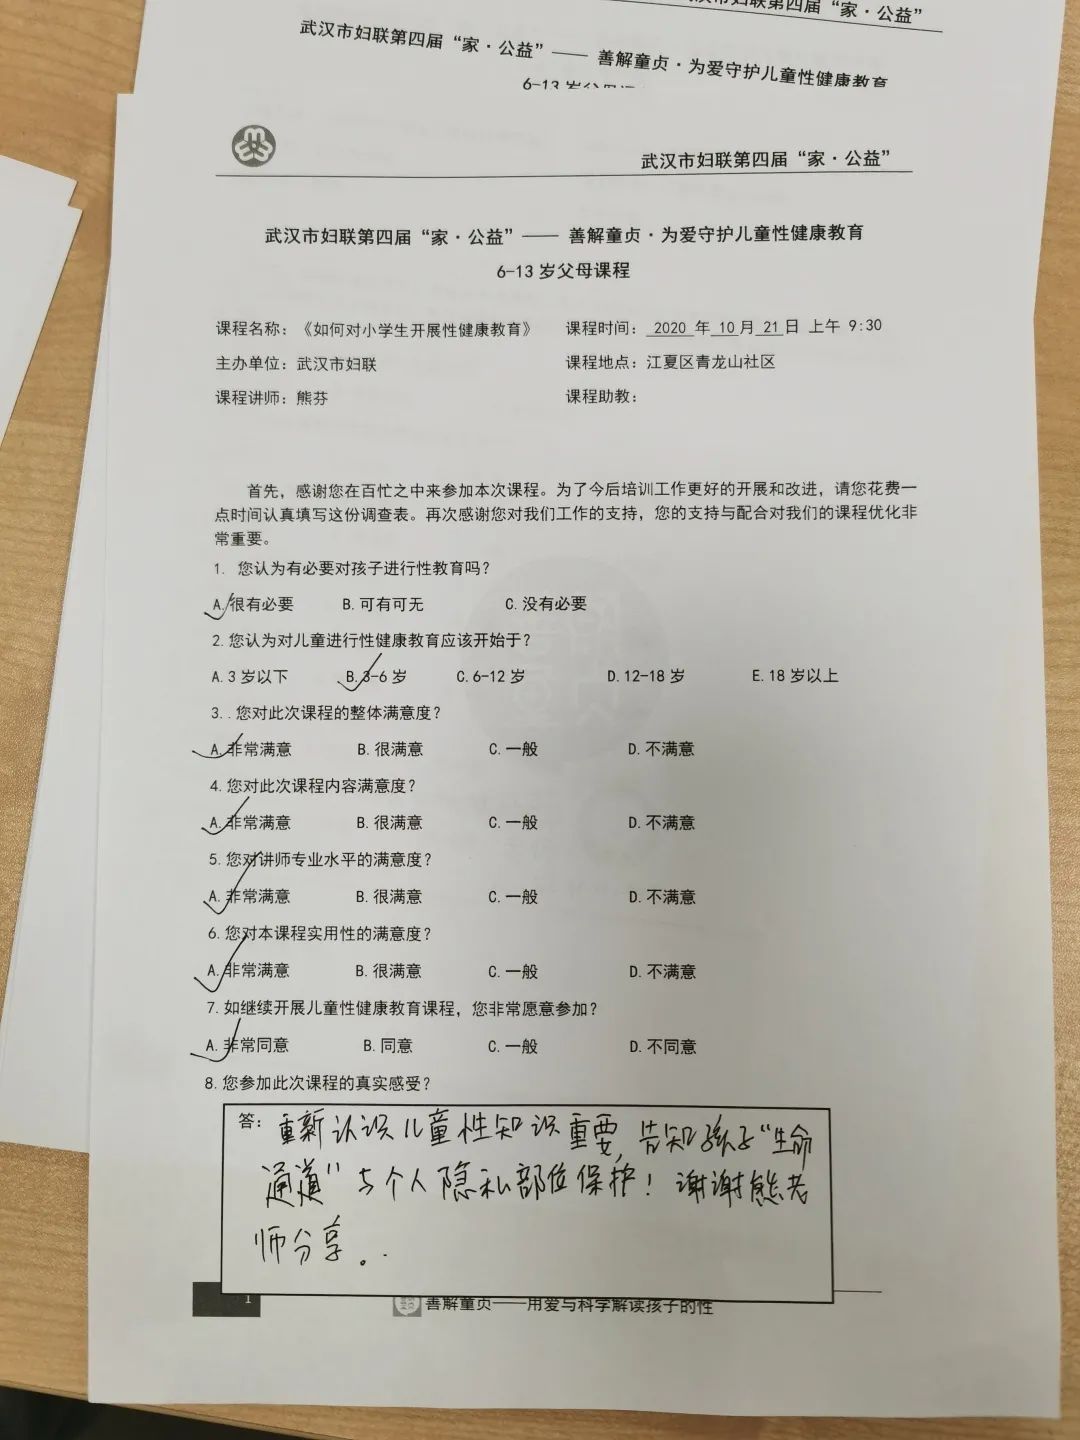 武汉市妇联第四届“家·公益”
武汉市妇联第四届“家·公益”—— 善解童贞·为爱守护儿童性健康教育
6-13 岁父母
武汉市妇联第四届“家·公益”
武汉市妇联第四届“家·公益”—— 善解童贞·为爱守护儿童性健康教育
6-13 岁父母课程
课程名称：《如何对小学生开展性健康教育》 课程时间： 2020 年 10 月 21 日 上午 9:30
主办单位：武汉市妇联 课程地点：江夏区青龙山社区
课程讲师：熊芬 课程助教：
首先，感谢您在百忙之中来参加本次课程。为了今后培训工作更好的开展和改进，请您花费一
点时间认真填写这份调查表。再次感谢您对我们工作的支持，您的支持与配合对我们的课程优化非
常重要。
1. 您认为有必要对孩子进行性教育吗？
A.很有必要 B.可有可无 C.没有必要
2.您认为对儿童进行性健康教育应该开始于？
A.3 岁以下 B.3-6 岁 C.6-12 岁 D.12-18 岁 E.18 岁以上
3..您对此次课程的整体满意度？
A.非常满意 B.很满意 C.一般 D.不满意
4.您对此次课程内容满意度？
A.非常满意 B.很满意 C.一般 D.不满意
5.您对讲师专业水平的满意度？
A.非常满意 B.很满意 C.一般 D.不满意
6.您对本课程实用性的满意度？
A.非常满意 B.很满意 C.一般 D.不满意
7.如继续开展儿童性健康教育课程，您非常愿意参加？
A.非常同意 B.同意 C.一般 D.不同意
8.您参加此次课程的真实感受？
答：重新认识儿童性知识重要，告知孩子“生命
通道”与个人隐私部位保护！谢谢熊老
师分享。.
1 善解童贞——用爱与科学解读孩子的性